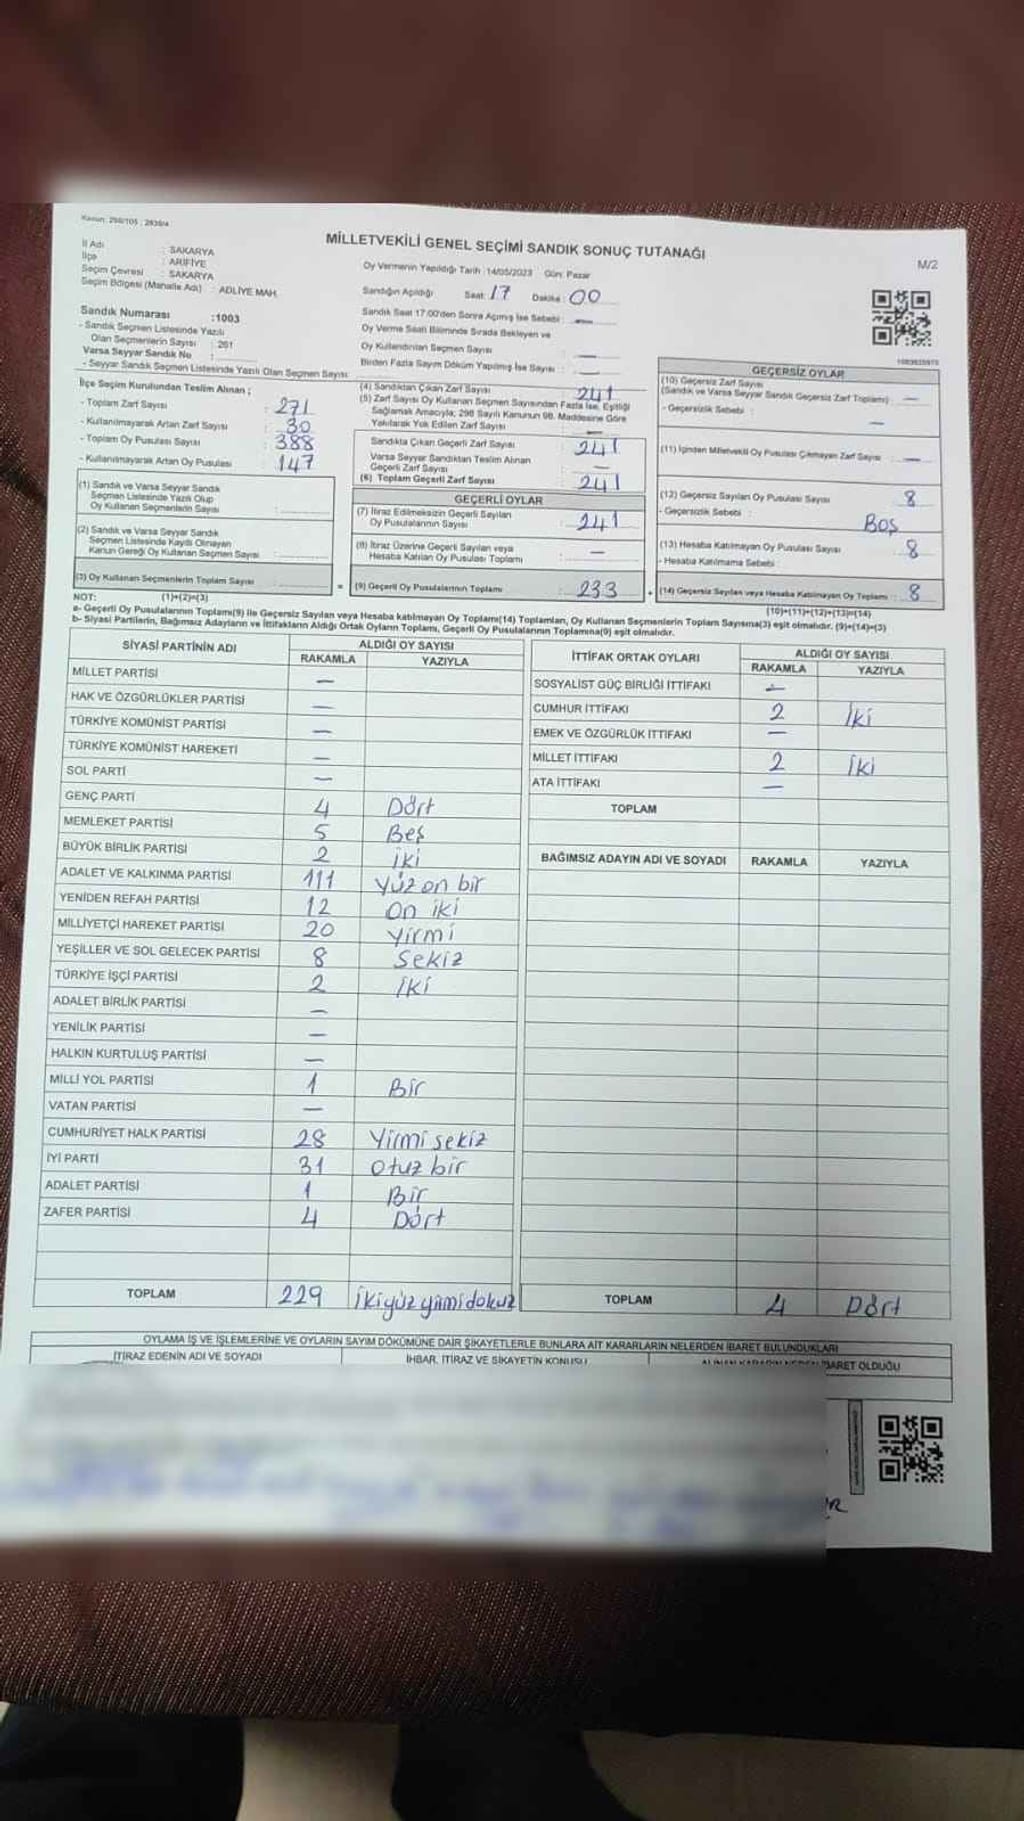 Kanun: 298/105 ; 2839/4
MİLLETVEKİLİ GENEL SEÇİMİ SANDIK SONUÇ TUTANAĞI
M/2
İl Adı : SAKARYA
İlçe : ARİFİYE
Seçim Çevresi : SAKARYA
Seçim Bölgesi (Mahalle Adı) : ADLİYE MAH.
Oy Vermenin Yapıldığı Tarih :14/05/2023 Gün: Pazar
Sandığın Açıldığı Saat: 17 Dakika: 00
Sandık Saat 17:00'den Sonra Açılmış İse Sebebi : —
Oy Verme Saati Bitiminde Sırada Bekleyen ve
Oy Kullandırılan Seçmen Sayısı : —
Birden Fazla Sayım Döküm Yapılmış İse Sayısı : —
Sandık Numarası :1003
- Sandık Seçmen Listesinde Yazılı
Olan Seçmenlerin Sayısı : 261
Varsa Seyyar Sandık No :
- Seyyar Sandık Seçmen Listesinde Yazılı Olan Seçmen Sayısı:
İlçe Seçim Kurulundan Teslim Alınan ;
- Toplam Zarf Sayısı : 271
- Kullanılmayarak Artan Zarf Sayısı : 30
- Toplam Oy Pusulası Sayısı : 388
- Kullanılmayarak Artan Oy Pusulası : 147
(1) Sandık ve Varsa Seyyar Sandık
Seçmen Listesinde Yazılı Olup
Oy Kullanan Seçmenlerin Sayısı :
(2) Sandık ve Varsa Seyyar Sandık
Seçmen Listesinde Kayıtlı Olmayan
Kanun Gereği Oy Kullanan Seçmen Sayısı :
(3) Oy Kullanan Seçmenlerin Toplam Sayısı :
(4) Sandıktan Çıkan Zarf Sayısı : 241
(5) Zarf Sayısı Oy Kullanan Seçmen Sayısından Fazla İse, Eşitliği
Sağlamak Amacıyla; 298 Sayılı Kanunun 98. Maddesine Göre
Yakılarak Yok Edilen Zarf Sayısı : —
Sandıkta Çıkan Geçerli Zarf Sayısı : 241
Varsa Seyyar Sandıktan Teslim Alınan
Geçerli Zarf Sayısı : —
(6) Toplam Geçerli Zarf Sayısı : 241
GEÇERLİ OYLAR
(7) İtiraz Edilmeksizin Geçerli Sayılan
Oy Pusulalarının Sayısı : 241
(8) İtiraz Üzerine Geçerli Sayılan veya
Hesaba Katılan Oy Pusulası Toplamı : —
= (9) Geçerli Oy Pusulalarının Toplamı : 233
GEÇERSİZ OYLAR
(10) Geçersiz Zarf Sayısı
(Sandık ve Varsa Seyyar Sandık Geçersiz Zarf Toplamı) : —
- Geçersizlik Sebebi : —
(11) İçinden Milletvekili Oy Pusulası Çıkmayan Zarf Sayısı : —
(12) Geçersiz Sayılan Oy Pusulası Sayısı : 8
- Geçersizlik Sebebi : Boş
(13) Hesaba Katılmayan Oy Pusulası Sayısı : 8
- Hesaba Katılmama Sebebi :
+ (14) Geçersiz Sayılan veya Hesaba Katılmayan Oy Toplamı : 8
NOT: (1)+(2)=(3)
(10)+(11)+(12)+(13)=(14)
a- Geçerli Oy Pusulalarının Toplamı(9) ile Geçersiz Sayılan veya Hesaba katılmayan Oy Toplamı(14) Toplamları, Oy Kullanan Seçmenlerin Toplam Sayısına(3) eşit olmalıdır. (9)+(14)=(3)
b- Siyasi Partilerin, Bağımsız Adayların ve İttifakların Aldığı Ortak Oyların Toplamı, Geçerli Oy Pusulalarının Toplamına(9) eşit olmalıdır.
SİYASİ PARTİNİN ADI ALDIĞI OY SAYISI
RAKAMLA YAZIYLA
MİLLET PARTİSİ —
HAK VE ÖZGÜRLÜKLER PARTİSİ —
TÜRKİYE KOMÜNİST PARTİSİ —
TÜRKİYE KOMÜNİST HAREKETİ —
SOL PARTİ —
GENÇ PARTİ 4 Dört
MEMLEKET PARTİSİ 5 Beş
BÜYÜK BİRLİK PARTİSİ 2 iki
ADALET VE KALKINMA PARTİSİ 111 Yüz on bir
YENİDEN REFAH PARTİSİ 12 On iki
MİLLİYETÇİ HAREKET PARTİSİ 20 Yirmi
YEŞİLLER VE SOL GELECEK PARTİSİ 8 Sekiz
TÜRKİYE İŞÇİ PARTİSİ 2 İki
ADALET BİRLİK PARTİSİ —
YENİLİK PARTİSİ —
HALKIN KURTULUŞ PARTİSİ —
MİLLİ YOL PARTİSİ 1 Bir
VATAN PARTİSİ —
CUMHURİYET HALK PARTİSİ 28 Yirmi sekiz
İYİ PARTİ 31 otuz bir
ADALET PARTİSİ 1 Bir
ZAFER PARTİSİ 4 Dört
TOPLAM 229 İkiyüz yirmi dokuz
İTTİFAK ORTAK OYLARI ALDIĞI OY SAYISI
RAKAMLA YAZIYLA
SOSYALİST GÜÇ BİRLİĞİ İTTİFAKI —
CUMHUR İTTİFAKI 2 İki
EMEK VE ÖZGÜRLÜK İTTİFAKI —
MİLLET İTTİFAKI 2 İki
ATA İTTİFAKI —
TOPLAM
BAĞIMSIZ ADAYIN ADI VE SOYADI RAKAMLA YAZIYLA
TOPLAM 4 Dört
OYLAMA İŞ VE İŞLEMLERİNE VE OYLARIN SAYIM DÖKÜMÜNE DAİR ŞİKAYETLERLE BUNLARA AİT KARARLARIN NELERDEN İBARET BULUNDUKLARI
İTİRAZ EDENİN ADI VE SOYADI İHBAR, İTİRAZ VE ŞİKAYETİN KONUSU ALINAN KARARIN NEDEN İBARET OLDUĞU